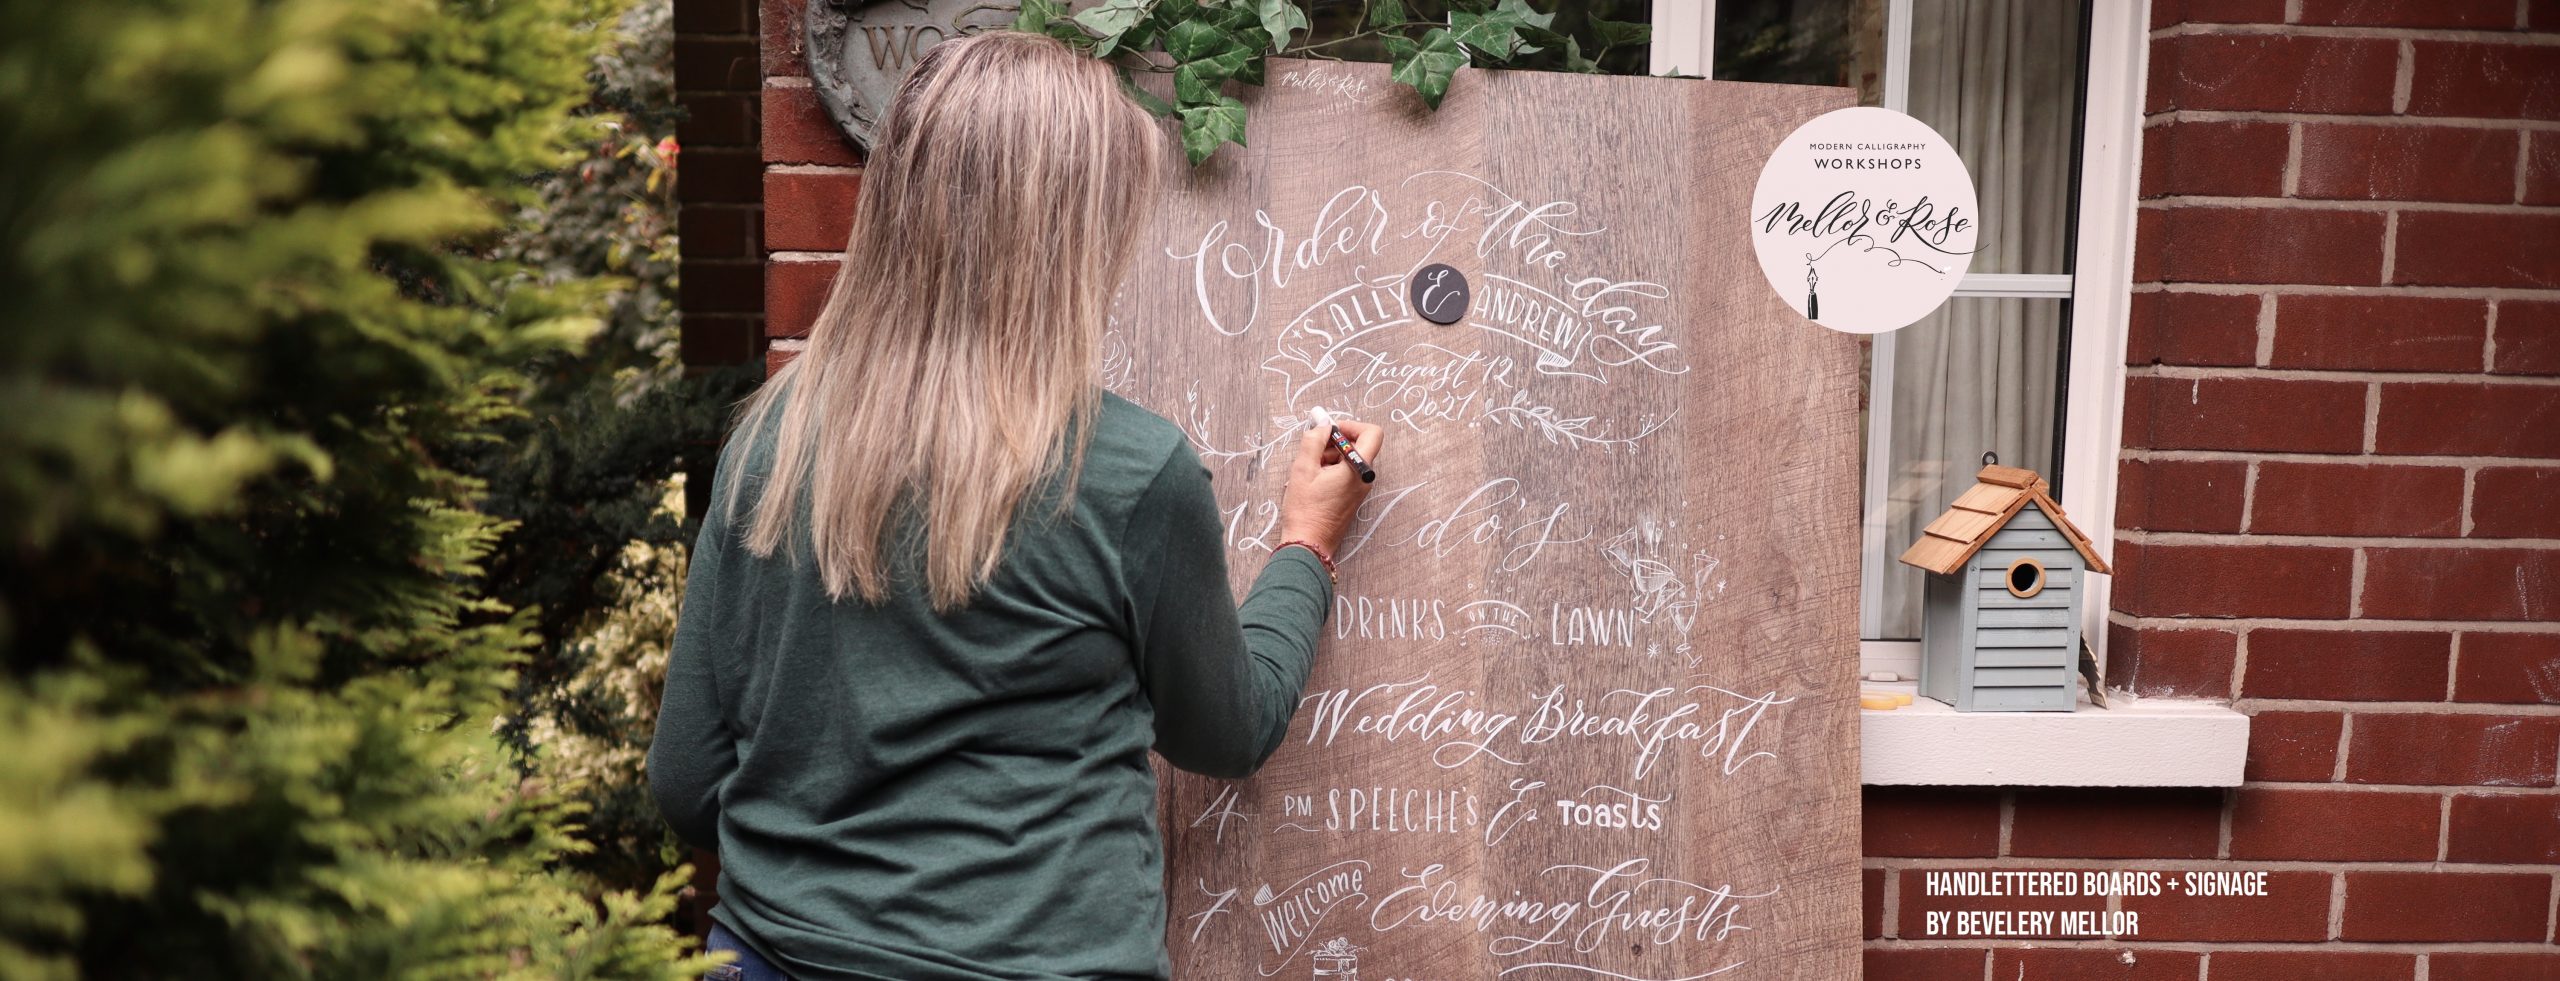 WO
Mellor & Rose
Order of the day
SALLY & ANDREW
August 12
2021
12 I do's
DRINKS ON THE LAWN
Wedding Breakfast
4 PM SPEECHE'S & Toasts
7 Welcome Evening Guests
MODERN CALLIGRAPHY
WORKSHOPS
Mellor & Rose
HANDLETTERED BOARDS + SIGNAGE
BY BEVELERY MELLOR